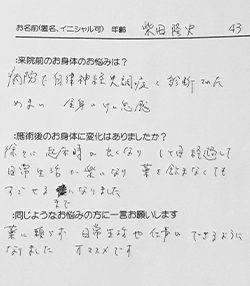 お名前(匿名、イニシャル可) 年齢 柴田隆史 43
:来院前のお身体のお悩みは?
病院で自律神経失調症と診断された
めまい 全身けん怠感
:施術後のお身体に変化はありましたか?
徐々に 起床時の良くなり して日経過して
日常生活が楽になり 薬を飲まなくても
すごせるまでになりました
:同じようなお悩みの方に一言お願いします
薬に頼らず 日常生活や仕事のできるように
なりました オススメです